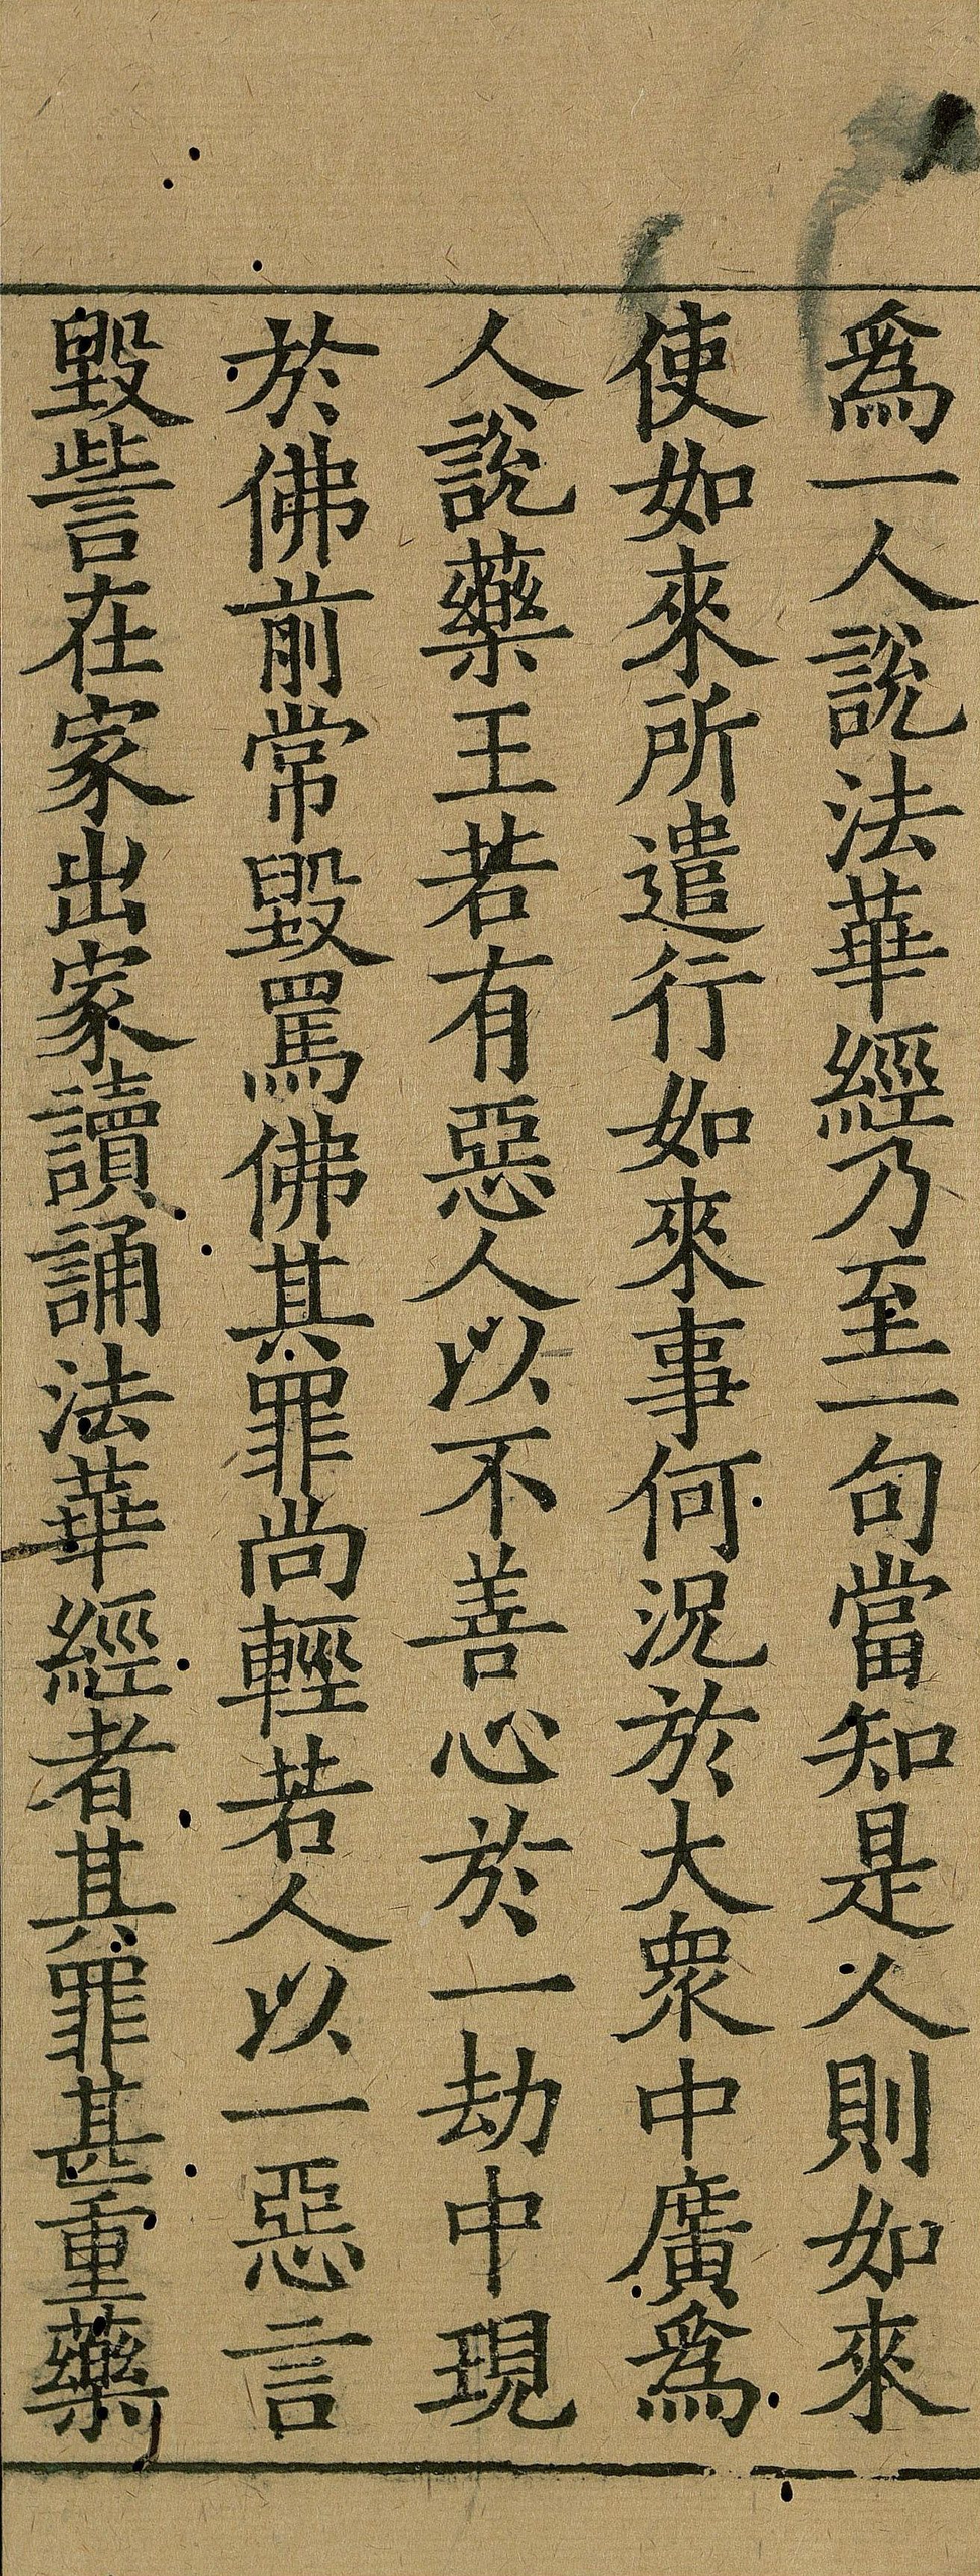 爲一人說法華經乃至一句當知是人則如來
使如來所遣行如來事何況於大衆中廣爲
人說藥王若有惡人以不善心於一劫中現
於佛前常毀罵佛其罪尚輕若人以一惡言
毀訾在家出家讀誦法華經者其罪甚重藥